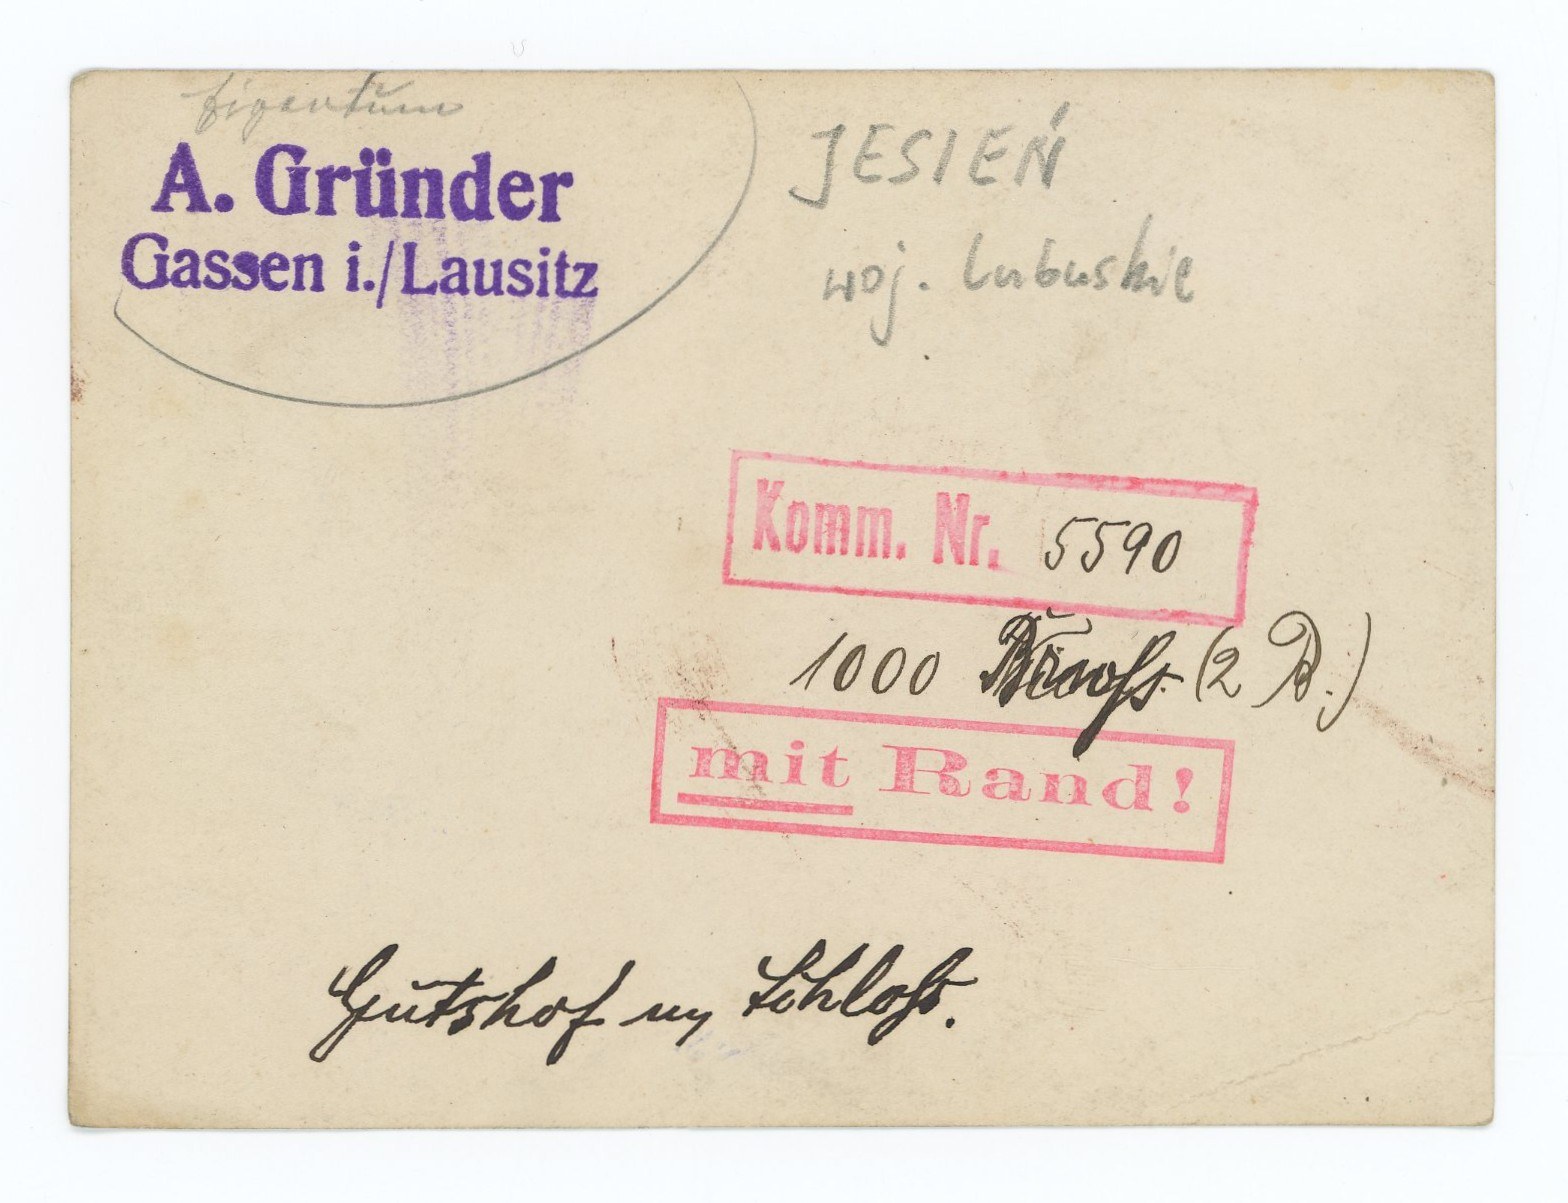 Eigentum
A. Gründer
Gassen i./Lausitz
JESIEŃ
woj. Lubuskie
Komm. Nr. 5590
1000 (2 B.)
mit Rand!
Gutshof m. Schloß.